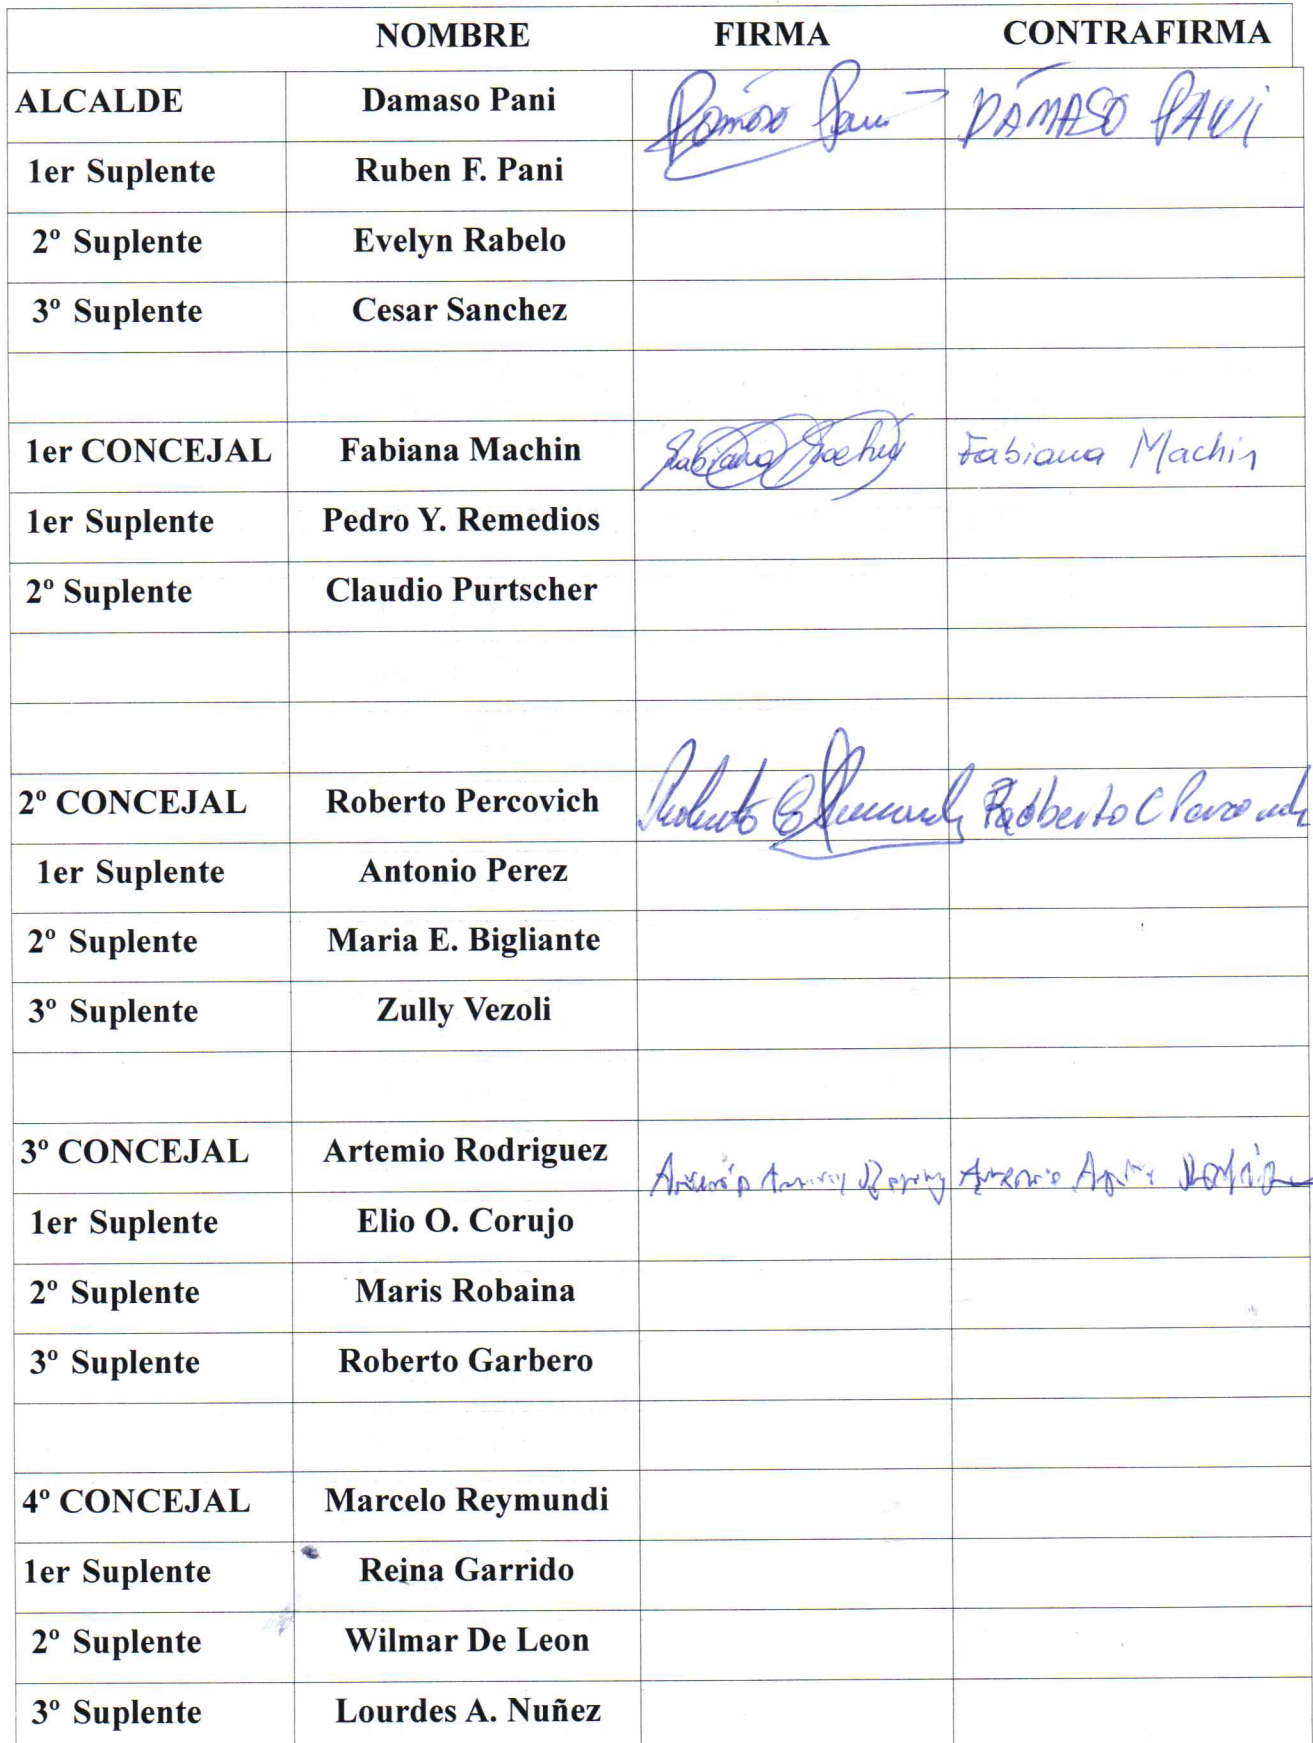 NOMBRE FIRMA CONTRAFIRMA
ALCALDE Damaso Pani Damaso Pani DAMASO PANI
1er Suplente Ruben F. Pani
2º Suplente Evelyn Rabelo
3º Suplente Cesar Sanchez
1er CONCEJAL Fabiana Machin Fabiana Machin Fabiana Machin
1er Suplente Pedro Y. Remedios
2º Suplente Claudio Purtscher
2º CONCEJAL Roberto Percovich Roberto C Roberto C Percovich
1er Suplente Antonio Perez
2º Suplente Maria E. Bigliante
3º Suplente Zully Vezoli
3º CONCEJAL Artemio Rodriguez Artemio Artemio
1er Suplente Elio O. Corujo
2º Suplente Maris Robaina
3º Suplente Roberto Garbero
4º CONCEJAL Marcelo Reymundi
1er Suplente Reina Garrido
2º Suplente Wilmar De Leon
3º Suplente Lourdes A. Nuñez